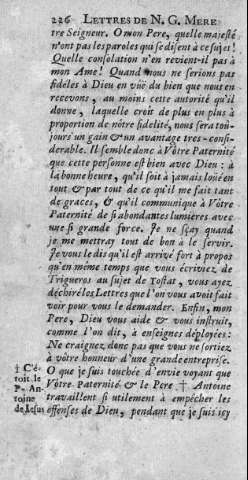 226 LETTRES DE N. G. MERE
tre Seigneur. O mon Pere, quelle majesté
n'ont pas les paroles qui se disent à ce sujet!
Quelle consolation n'en revient-il pas à
mon Ame! Quand nous ne serions pas
fidéles à Dieu en vûë du bien que nous en
recevons, au moins cette autorité qu'il
donne, laquelle croît de plus en plus à
proportion de nôtre fidelité, nous sera toû-
jours un gain & un avantage tres-consi-
derable. Il semble donc à Vôtre Paternité
que cette personne est bien avec Dieu: à
la bonne heure, qu'il soit à jamais loüé en
tout & par tout de ce qu'il me fait tant
de graces, & qu'il communique à Vôtre
Paternité de si abondantes lumieres avec
une si grande force. Je ne sçay quand
je me mettray tout de bon à le servir.
Je vous le dis qu'il est arrivé fort à propos
qu'en même temps que vous écriviez de
Trigueros au sujet de Tostat, vous ayez
déchiré les Lettres que l'on vous avoit fait
voir pour vous le demander. Enfin, mon
Pere, Dieu vous aide & vous instruit,
comme l'on dit, à enseignes déployées:
Ne craignez donc pas que vous ne sortiez
à vôtre honneur d'une grande entreprise.
O que je suis touchée d'envie voyant que
Vôtre Paternité & le Pere † Antoine
travaillent si utilement à empécher les
offenses de Dieu, pendant que je suis icy
† C'é-
toit le
P. An-
toine
de Jesus